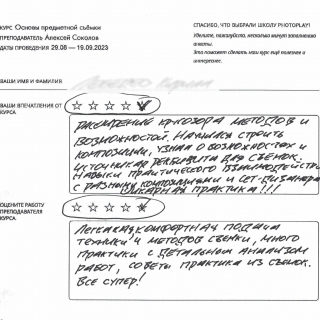 КУРС Основы предметной съёмки
ПРЕПОДАВАТЕЛЬ Алексей Соколов
ДАТЫ ПРОВЕДЕНИЯ 29.08 — 19.09.2023
СПАСИБО, ЧТО ВЫБРАЛИ ШКОЛУ PHOTOPLAY!
Уделите, пожалуйста, несколько минут заполнению
анкеты.
Это поможет сделать наш курс ещё полезнее и
интереснее.
ВАШИ ИМЯ И ФАМИЛИЯ
ВАШИ ВПЕЧАТЛЕНИЯ ОТ
КУРСА
РАСШИРЕНИЕ КРУГОЗОРА МЕТОДОВ И
ВОЗМОЖНОСТЕЙ. НАУЧИЛАСЬ СТРОИТЬ
КОМПОЗИЦИИ, УЗНАЛА О ВОЗМОЖНОСТЯХ И
ИСТОЧНИКАХ РЕКВИЗИТА ДЛЯ СЪЕМОК.
НАВЫКИ ПРАКТИЧЕСКОГО ВЗАИМОДЕЙСТВИЯ
С РАЗНЫМИ КОМПОЗИЦИЯМИ И СЕТ-ДИЗАЙНАМИ
ШИКАРНАЯ ПРАКТИКА!!!
ОЦЕНИТЕ РАБОТУ
ПРЕПОДАВАТЕЛЯ
КУРСА
ЛЕГКАЯ, КОМФОРТНАЯ ПОДАЧА
ТЕХНИКИ И МЕТОДОВ СЪЕМКИ, МНОГО
ПРАКТИКИ С ДЕТАЛЬНЫМ АНАЛИЗОМ
РАБОТ, СОВЕТЫ ПРАКТИКА ИЗ СЪЕМОК.
ВСЕ СУПЕР!